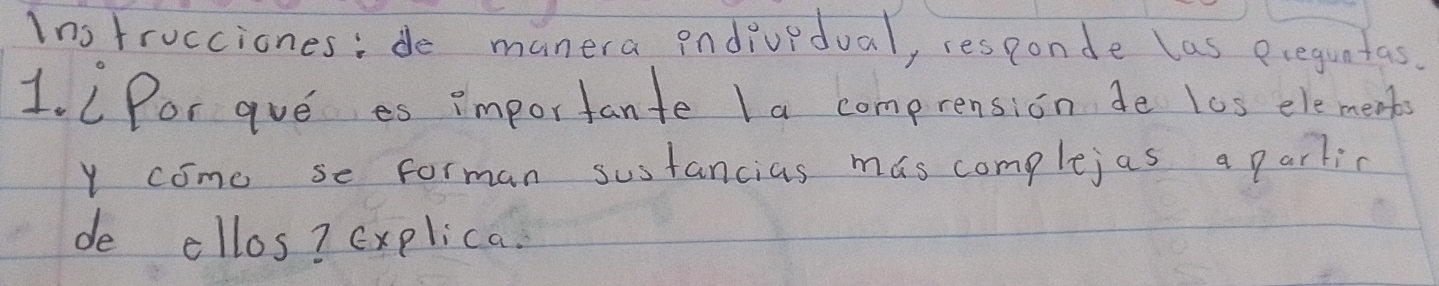 Instrucciones: de manera individual, responde las preguntas.
1. ¿Por qué es importante la comprensión de los elementos
y cómo se forman sustancias más complejas apartir
de ellos? Explica.